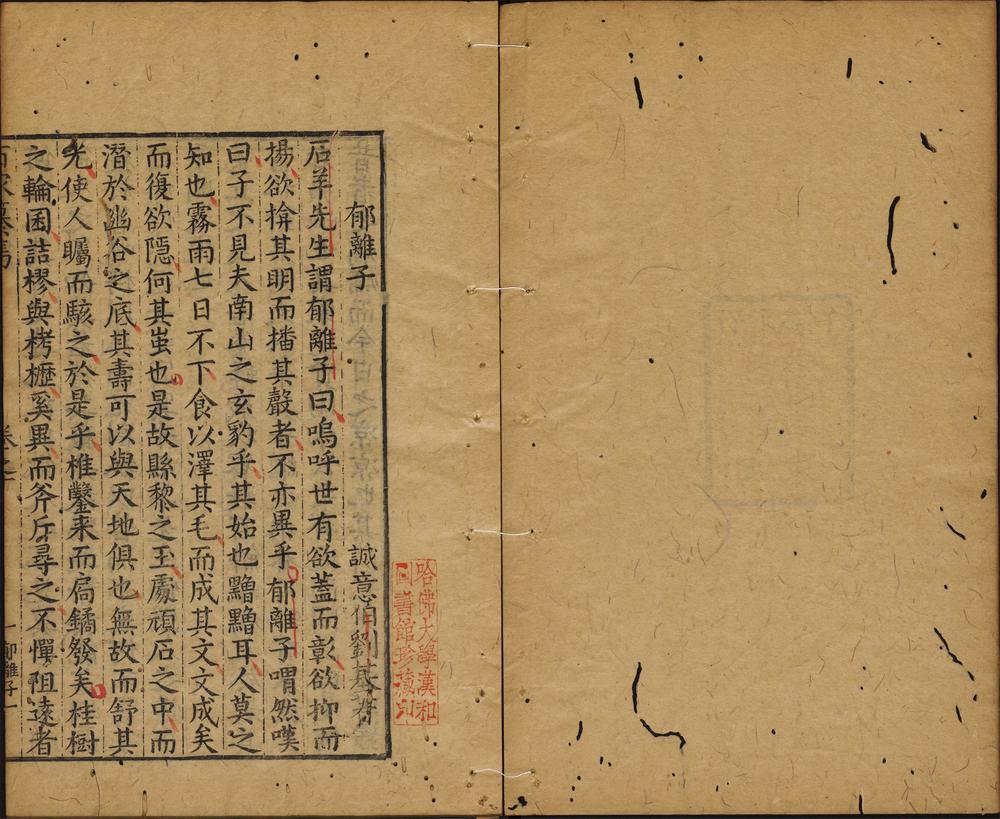 郁離子
誠意伯劉基著
石羊先生謂郁離子曰嗚呼世有欲蓋而彰欲抑而
揚欲揜其明而播其聲者不亦異乎郁離子喟然嘆
曰子不見夫南山之玄豹乎其始也黯黯耳人莫之
知也霧雨七日不下食以澤其毛而成其文文成矣
而復欲隱何其蚩也是故縣黎之玉處頑石之中而
潛於幽谷之底其壽可以與天地俱也無故而舒其
光使人矚而駭之於是乎椎鑿来而扃鐍發矣桂樹
之輪囷詰樛與栲櫪奚異而斧斤尋之不憚阻遠者
卷之
一郁離子一
哈佛大學漢和
圖書館珍藏印